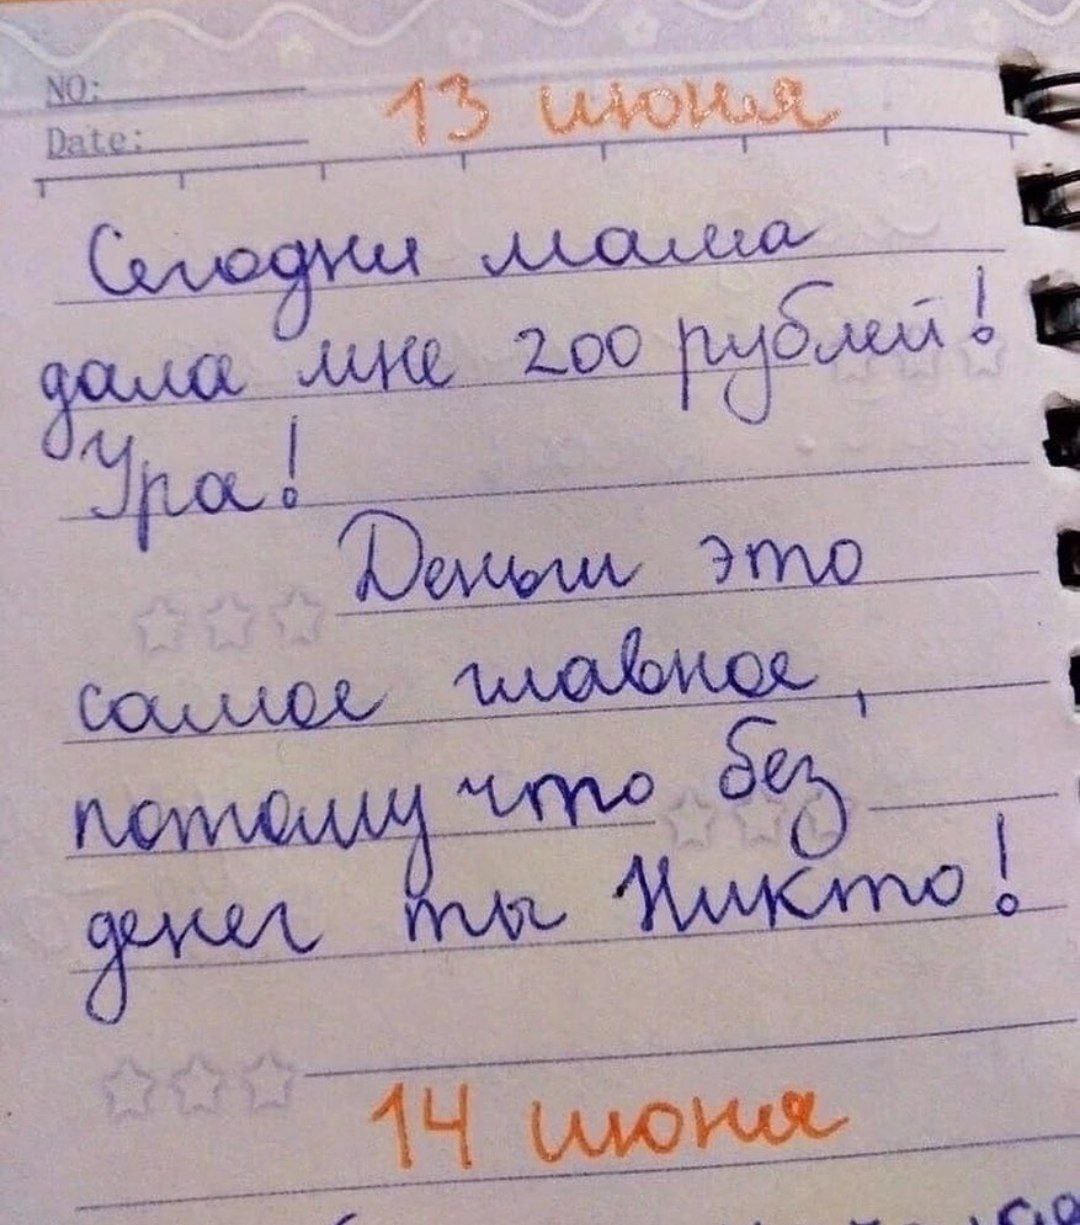 NO:
13 июня
Date:
Сегодня мама
дала мне 200 рублей!
Ура!
Деньги это
самое главное,
потому что без
денег ты Никто!
14 июня